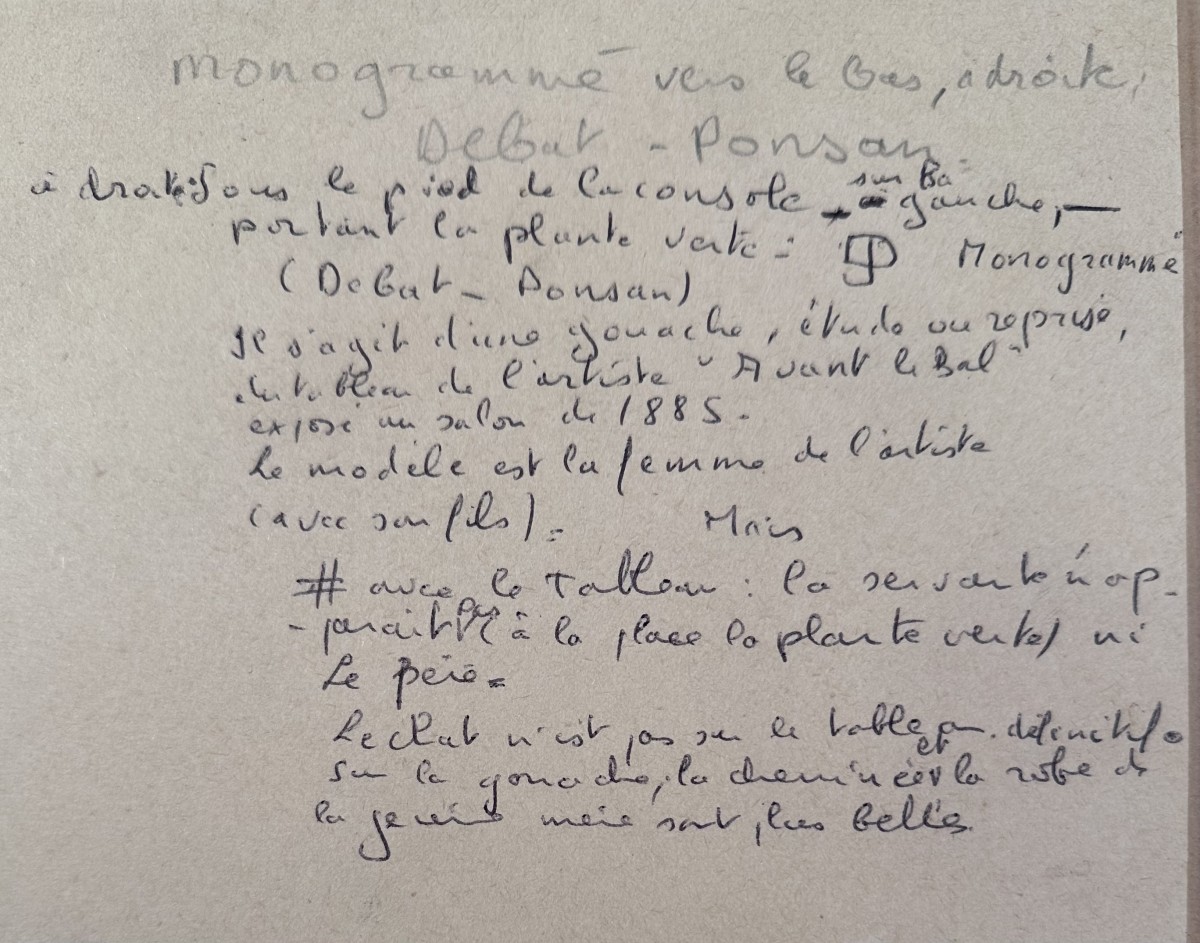 monogrammé vers le bas, à droite,
Debat - Ponsan
à droite: Sous le pied de la console sur Ba gauche, —
portant la plante verte : Monogrammé
(Debat - Ponsan)
Il s'agit d'une gouache, étude ou reprise,
du tableau de l'artiste "Avant le Bal"
exposé au salon de 1885.
Le modèle est la femme de l'artiste
(avec son fils). Mais
# avec le Tableau : la servante n'ap-
-parait pas (à la place la plante verte) ni
Le père.
Le chat n'est pas sur le tableau définitif.
Sur la gouache, la cheminée et la robe de
la jeune mère sont plus belles.